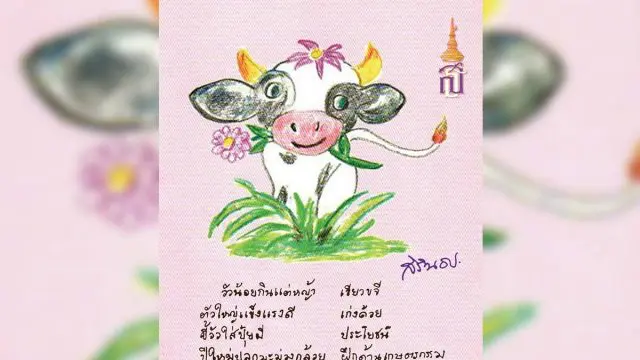 สิรินธร
วัวน้อยกินแต่หญ้า เขียวขจี
ตัวใหญ่แข็งแรงดี เก่งค้อย
ขี้วัวใส่ปุ๋ยมี ประโยชน์
ปีใหม่ปลูกมะม่วงกล้วย ฝึกด้านเกษตรกรรม